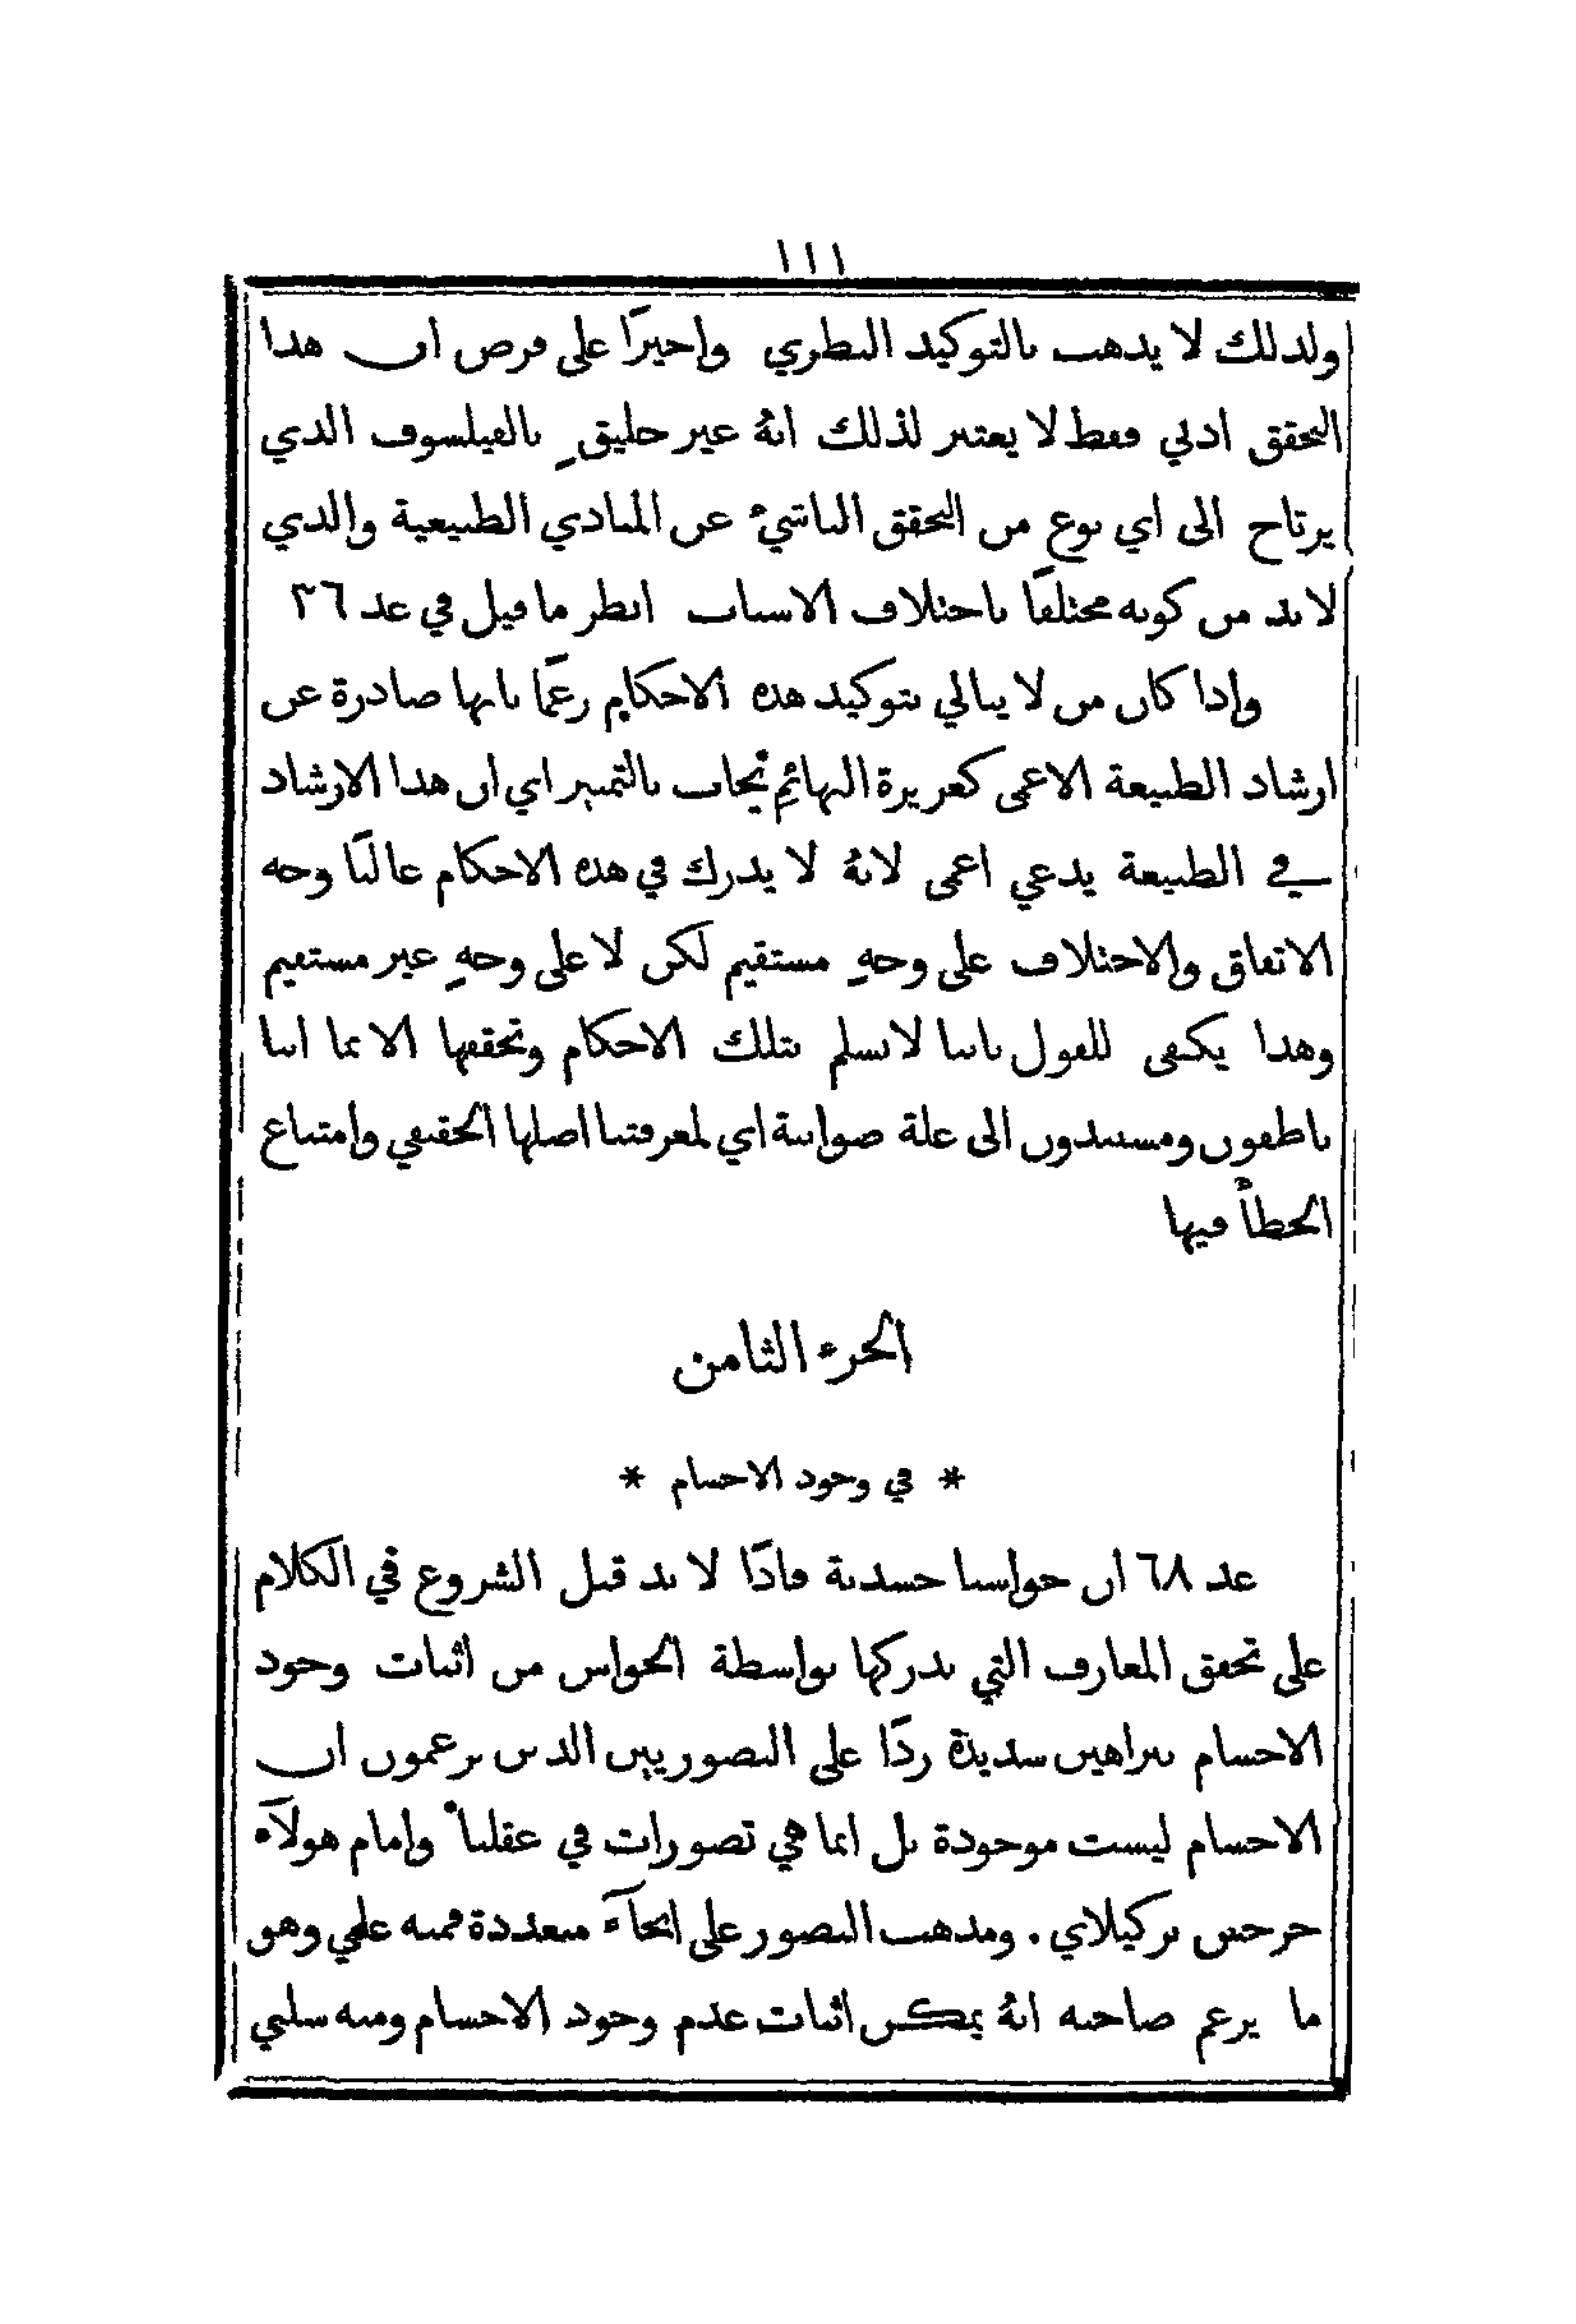 ١١١
ولذلك لا يذهب بالتوكيد النظري واخيرًا على فرض ان هذا
التحقق ادلي فقط لا يعتبر لذلك انهُ غير خليقٍ بالفيلسوف الذي
يرتاح الى اي نوع من التحقق الناشيء عن المبادي الطبيعية والذي
لا بد من كونه مختلفًا باختلاف الاسباب انظر ما قيل في عد ٣٦
واذا كان من لا يبالي بتوكيد هذه الاحكام زعمًا بانها صادرة عن
ارشاد الطبيعة الاعمى كغريزة البهائم نجاب بالتمييز اي ان هذا الارشاد
في الطبيعة يدعي اعمى لانهُ لا يدرك في هذه الاحكام غالبًا وجه
الاتفاق والاختلاف على وجهٍ مستقيم لكن لا على وجهٍ غير مستقيم
وهذا يكفي للقول باننا لا نسلم بتلك الاحكام وتحققها الا بما اننا
ناطقون ومستندون الى علة صوابية اي لمعرفتنا اصلها الحقيقي وامتناع
الخطأ فيها
الجزء الثامن
* في وجود الاجسام *
عد ٦٨ ان حواسنا جسدية فاذًا لا بد قبل الشروع في الكلام
على تحقق المعارف التي ندركها بواسطة الحواس من اثبات وجود
الاجسام ببراهين سديدة ردًا على التصوريين الذين يزعمون ان
الاجسام ليست موجودة بل انما هي تصورات في عقلنا وامام هولآء
جرجس بركيلاي . ومذهب التصور على انحآء متعددة فمنه علمي وهو
ما يزعم صاحبه انهُ يمكن اثبات عدم وجود الاجسام ومنه سلبي